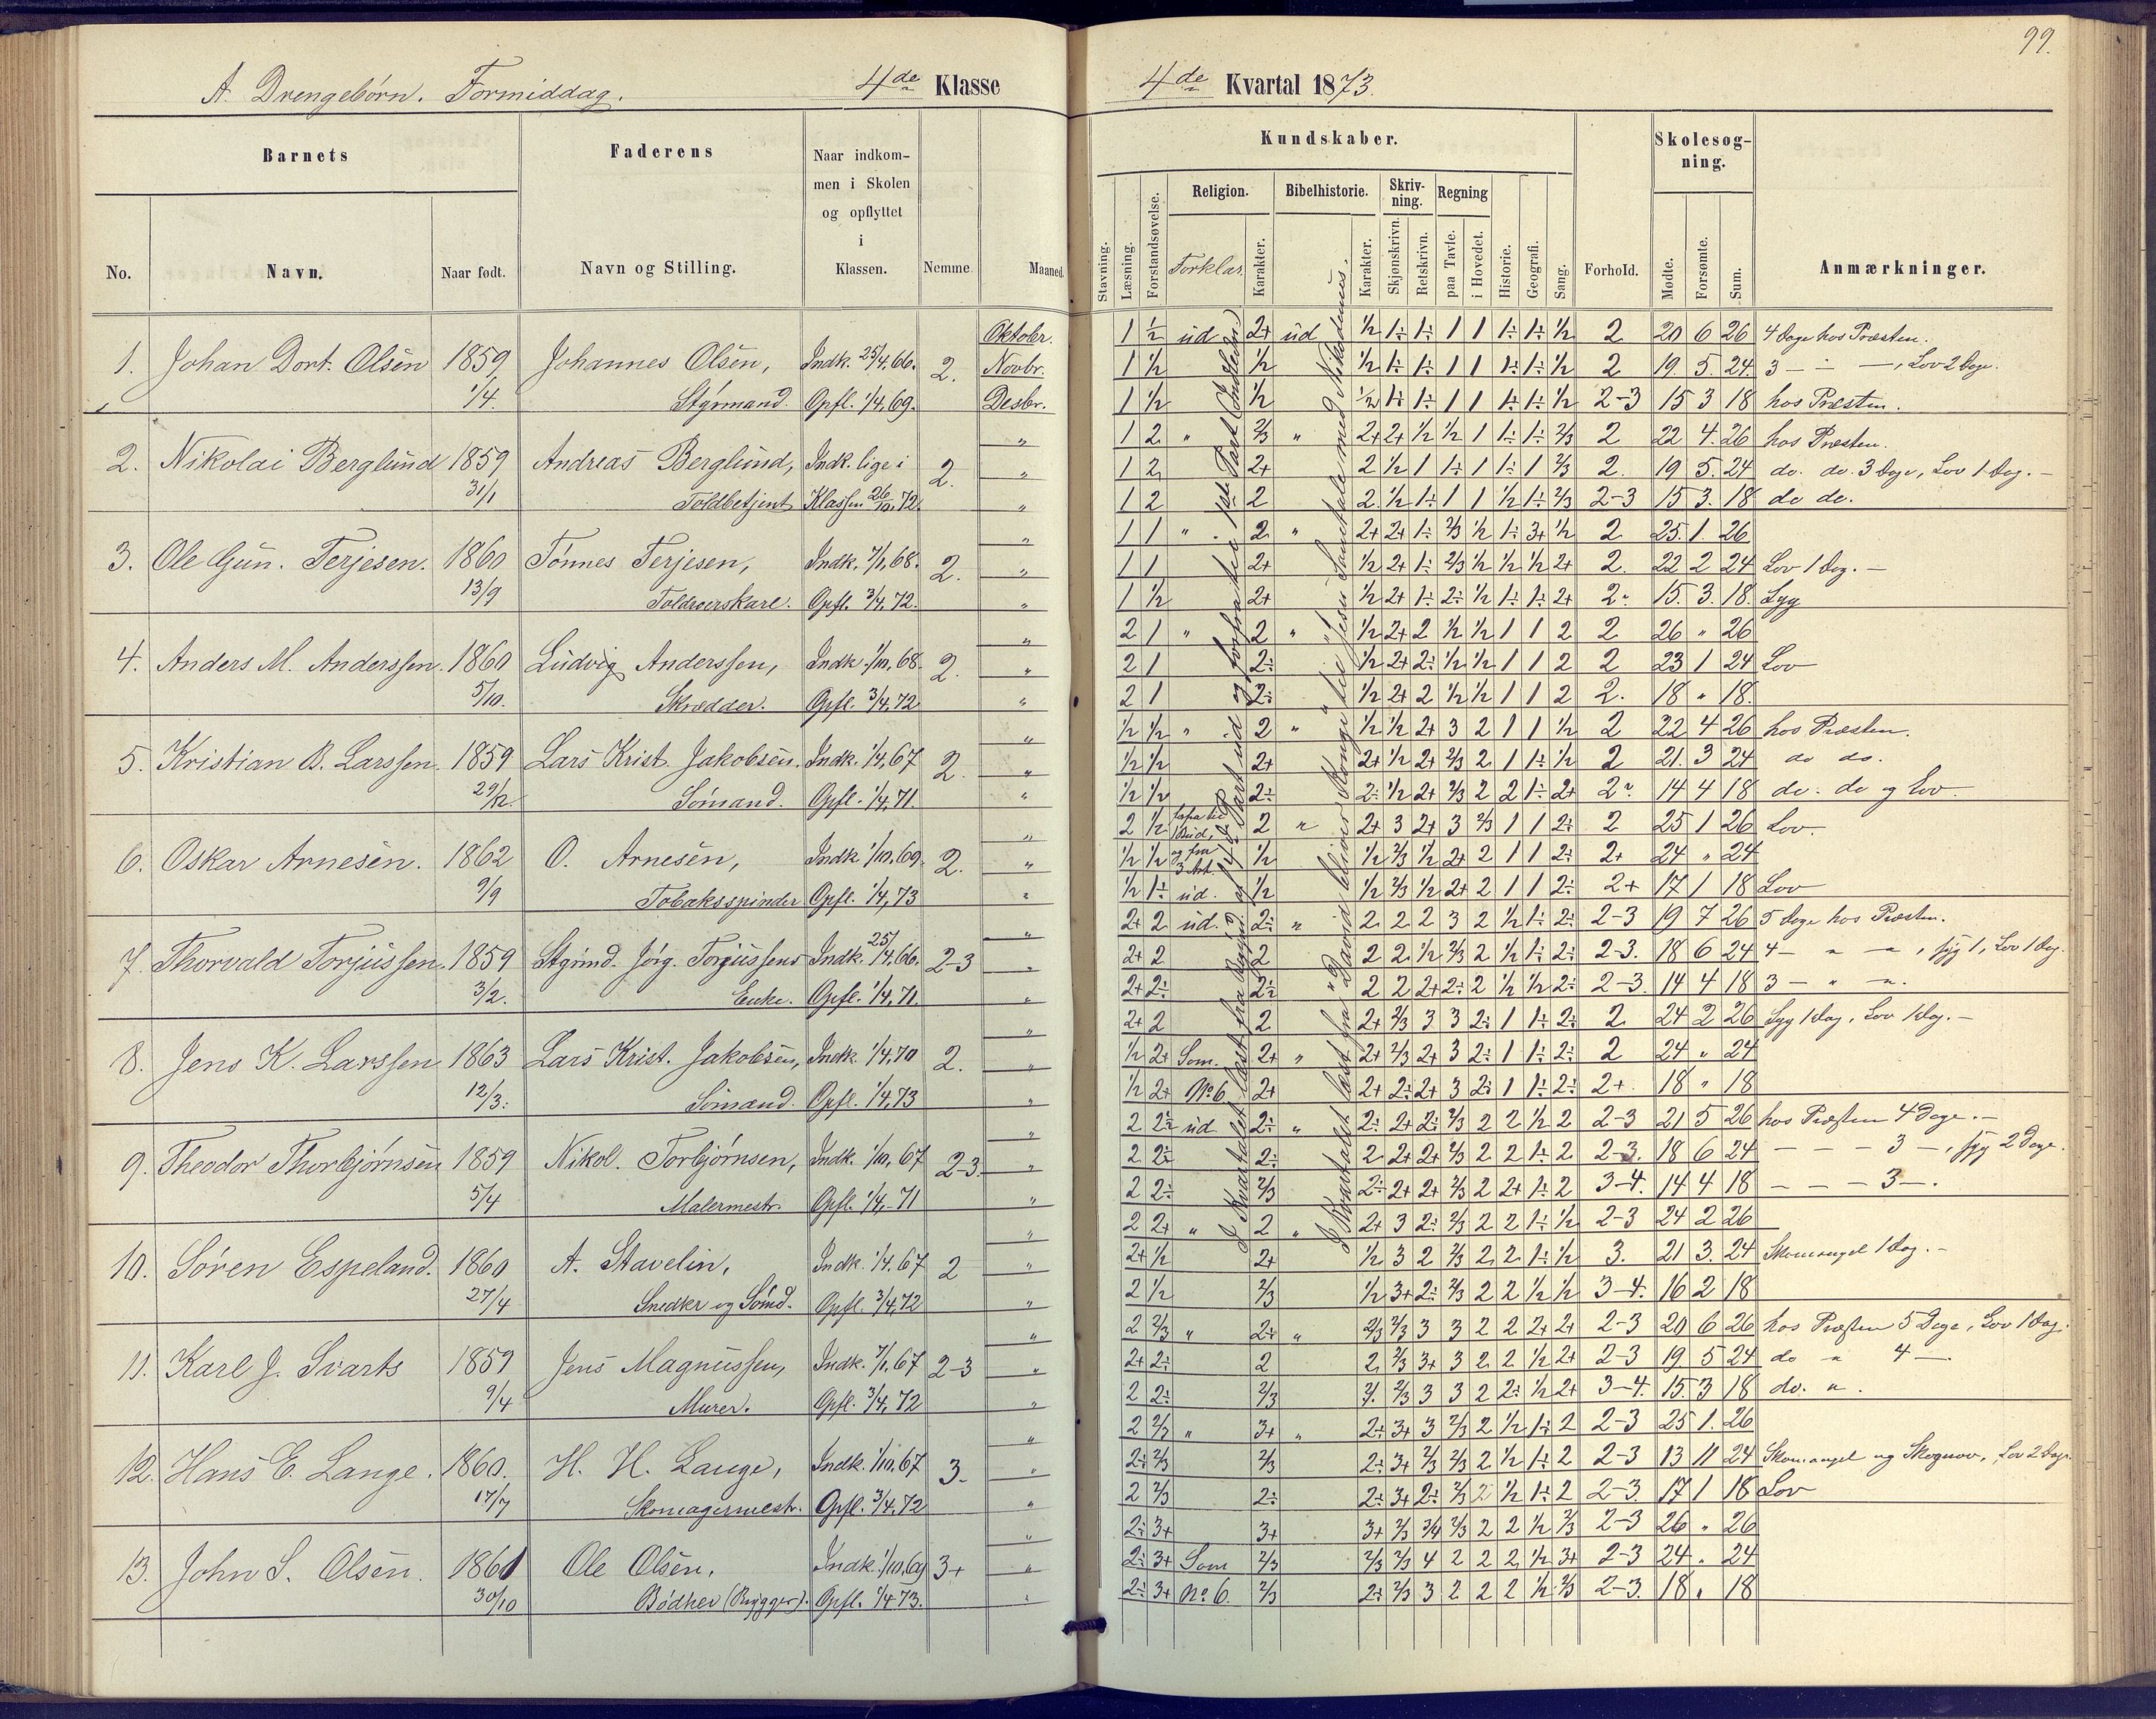 99.
A. Drengebørn. Formiddag. 4de Klasse
4de Kvartal 1873.
Barnets
Faderens
Naar indkommen i Skolen og opflyttet i Klassen.
No. Navn. Naar født. Navn og Stilling. Nemme Maaned.
Kundskaber. Skolesøgning.
Religion. Bibelhistorie. Skrivning. Regning
Stavning. Læsning. Forstandsøvelse. Forklar. Karakter. Karakter. Skjønskrivn. Retskrivn. paa Tavle. i Hovedet. Historie. Geografi. Sang. Forhold. Mødte. Forsømte. Sum. Anmærkninger.
Oktober.
1. Johan Dort. Olsen 1859 Johannes Olsen, Indk. 25/4.66. 2. Novbr.
1/4. Styrmand. Opfl. 1/4.69. Desbr.
2. Nikolai Berglund 1859 Andreas Berglund, Indk. lige i 2. "
31/1 Toldbetjent Klassen 26/10.72. "
3. Ole Gun. Terjesen. 1860 Tønnes Terjesen, Indk. 7/1.68. 2. "
13/9 Toldroerskarl. Opfl. 3/4.72. "
4. Anders M. Anderssen. 1860 Ludvig Anderssen, Indk. 1/10.68. 2. "
5/10. Skrædder. Opfl. 3/4.72 "
5. Kristian B. Larssen. 1859 Lars Krist. Jakobsen. Indk. 1/4.67 2. "
29/12. Sømand. Opfl. 1/4.71. "
6. Oskar Arnesen. 1862 O. Arnesen, Indk. 1/10.69. 2. "
9/9 Tobaksspinder Opfl. 1/4.73 "
7. Thorvald Torjussen. 1859 Styrmd. Jørg. Torjussens Indk. 25/4.66. 2-3 "
3/2. Enke. Opfl. 1/4.71. "
8. Jens K. Larssen 1863 Lars Krist. Jakobsen, Indk. 1/4.70 2. "
12/3. Sømand. Opfl. 1/4.73 "
9. Theodor Thorbjørnsen 1859 Nikol. Torbjørnsen, Indk. 1/10.67 2-3. "
5/4 Malermestr. Opfl. 1/4.71 "
10. Søren Espeland. 1860 A. Stavelin, Indk. 1/4.67 2 "
27/4 Snedker og Sømd. Opfl. 3/4.72 "
11. Karl J. Svarts 1859 Jens Magnussen, Indk. 7/1.67 2-3 "
9/4 Murer. Opfl. 3/4.72 "
12. Hans E. Lange. 1860. H. H. Lange, Indk. 1/10.67 3. "
17/7 Skomagermestr. Opfl. 3/4.72 "
13. John S. Olsen. 1861 Ole Olsen, Indk. 1/10.69 3+ "
30/10 Bødker (Brygger). Opfl. 1/4.73. "
1 1/2 ud 2+ ud 1/2 1÷ 1÷ 1 1 1÷ 1÷ 1/2 2 20 6 26 4 Dage hos Præsten.
1 1/2 1/2 1/2 1÷ 1÷ 1 1 1÷ 1÷ 1/2 2 19 5. 24. 3 - - -, Lov 2 Dage.
1 1/2 1/2 1/2 1÷ 1÷ 1 1 1÷ 1÷ 1/2 2-3 15 3 18 hos Præsten.
1 2 " 2/3 " 2+ 2+ 1/2 1/2 1 1÷ 1÷ 2/3 2 22 4. 26 hos Præsten.
1 2 2+ 2 1/2 1 1÷ 1 1÷ 1 2/3 2. 19 5. 24 do. do. 3 Dage, Lov 1 Dag. -
1 2 2 2 1/2 1÷ 1 1 1/2 1÷ 2/3 2-3 15 3. 18 do do.
1 1 " 2 " 2+ 2+ 1÷ 2/3 1/2 1÷ 3+ 1/2 2 25. 1. 26
1 1 2+ 1/2 2+ 1÷ 2/3 1/2 1/2 1/2 2+ 2. 22 2 24 Lov 1 Dag. -
1 1/2 2+ 1/2 2+ 1÷ 2÷ 1/2 1÷ 1÷ 2+ 2 15. 3. 18. Syg
2 1 " 2 " 1/2 2+ 2 1/2 1/2 1 1 2 2 26 " 26
2 1 2÷ 1/2 2+ 2÷ 1/2 1/2 1 1 2 2 23 1 24 Lov
2 1 2÷ 1/2 2+ 2 1/2 1/2 1 1 2 2. 18 " 18.
1/2 1/2 " 2 " 1/2 1/2 2+ 3 2 1 1 1/2 2 22 4 26 hos Præsten.
1/2 1/2 2+ 2+ 1/2 2+ 2/3 2 1 1÷ 1/2 2 21. 3 24 do do.
1/2 1/2 2÷ 2÷ 1/2 2+ 2/3 2 2 1÷ 2+ 2 14 4 18 do. do og Lov
2 1/2 2 " 2+ 3 2+ 3 2/3 1 1 2÷ 2 25 1 26 Lov.
1/2 1/2 og fra 3 Art. 1/2 1/2 2/3 1/2 2+ 2 1 1 2÷ 2+ 24 " 24
1/2 1÷ ud. 1/2 1/2 2/3 1/2 2+ 2 1 1 2÷ 2+ 17 1 18 Lov
2+ 2 ud. 2÷ " 2 2 2 3 2 1/2 1÷ 2÷ 2-3 19 7 26 5 Dage hos Præsten.
2+ 2 2 2 2 1/2 2/3 2 1/2 1÷ 2÷ 2-3. 18 6 24 4 - " -, syg 1, Lov 1 Dag.
2+ 2÷ 2÷ 2 2 2+ 2÷ 2 1/2 1/2 2÷ 2-3. 14 4 18 3 - " -.
2+ 2 2 2+ 2/3 3 3 2÷ 1 1÷ 2÷ 2 24 2 26 Syg 1 Dag, Lov 1 Dag. -
1/2 2+ Som. 2+ " 2+ 2/3 2+ 3 2÷ 1 1÷ 2÷ 2 24 " 24
1/2 2+ No 6 2+ 2+ 2÷ 2+ 3 2÷ 1 1÷ 2÷ 2+ 18 " 18
2 2÷ ud 2÷ " 2÷ 2+ 2÷ 2/3 2 2 1/2 2 2-3 21 5 26 hos Præsten 4 Dage. -
2 2÷ 2÷ 2 2+ 2+ 2/3 2 2 1÷ 2 2-3. 18 6 24 - - - 3 -, syg 2 Dage.
2 2÷ 2/3 2÷ 2+ 2+ 2/3 2 2+ 1÷ 2 3-4. 14 4 18 - - - 3 -.
2 2+ " 2 " 2+ 3 2÷ 2/3 2 2 1÷ 1/2 2-3 24 2 26
2+ 1/2 2+ 1/2 3 2 2/3 2 2 1÷ 1/2 3. 21 3. 24 Skomangel 1 Dag. -
2 1/2 2/3 1/2 3+ 2÷ 2/3 2 2 1/2 1/2 3-4. 16 2 18
2 2/3 " 2÷ " 2/3 2/3 3 3 2 2 2+ 2+ 2-3 20 6 26 hos Præsten 5 Dage, Lov 1 Dag.
2+ 2÷ 2 2 2/3 3+ 3 2 2 1/2 2+ 2-3 19 5 24 do " 4 -.
2 2÷ 2/3 2/3 3 3 2 2÷ 1/2 2+ 3-4. 15. 3 18 do. ".
2 2/3 " 3+ " 2+ 3+ 3 2/3 2 1/2 1÷ 2 2-3 25 1. 26
2÷ 2/3 2/3 2÷ 3+ 2/3 2/3 2 1/2 1÷ 2 2-3 13 11 24 Skomangel og Lov 2 Dage.
2 2/3 2÷ 2÷ 3+ 2÷ 2/3 2 1/2 1÷ 2 2-3. 17 1 18 Lov
2÷ 3+ 3+ 3+ 2/3 3/4 2/3 2 2 1/2 2/3 2-3 26 " 26
2÷ 3+ Som 2/3 2/3 2/3 4 2 2 2 1/2 3+ 2-3 24 " 24
2÷ 3+ No. 6. 2/3 2÷ 2/3 3 2 2 2 1/2 2/3 2-3. 18 " 18
I Kvartalet læst fra Part ud og forfra til 1ste Part (Indledn.)
I Kvartalet læst fra "David bliver Konge" til "Jesu Samtale med Nikodemus".